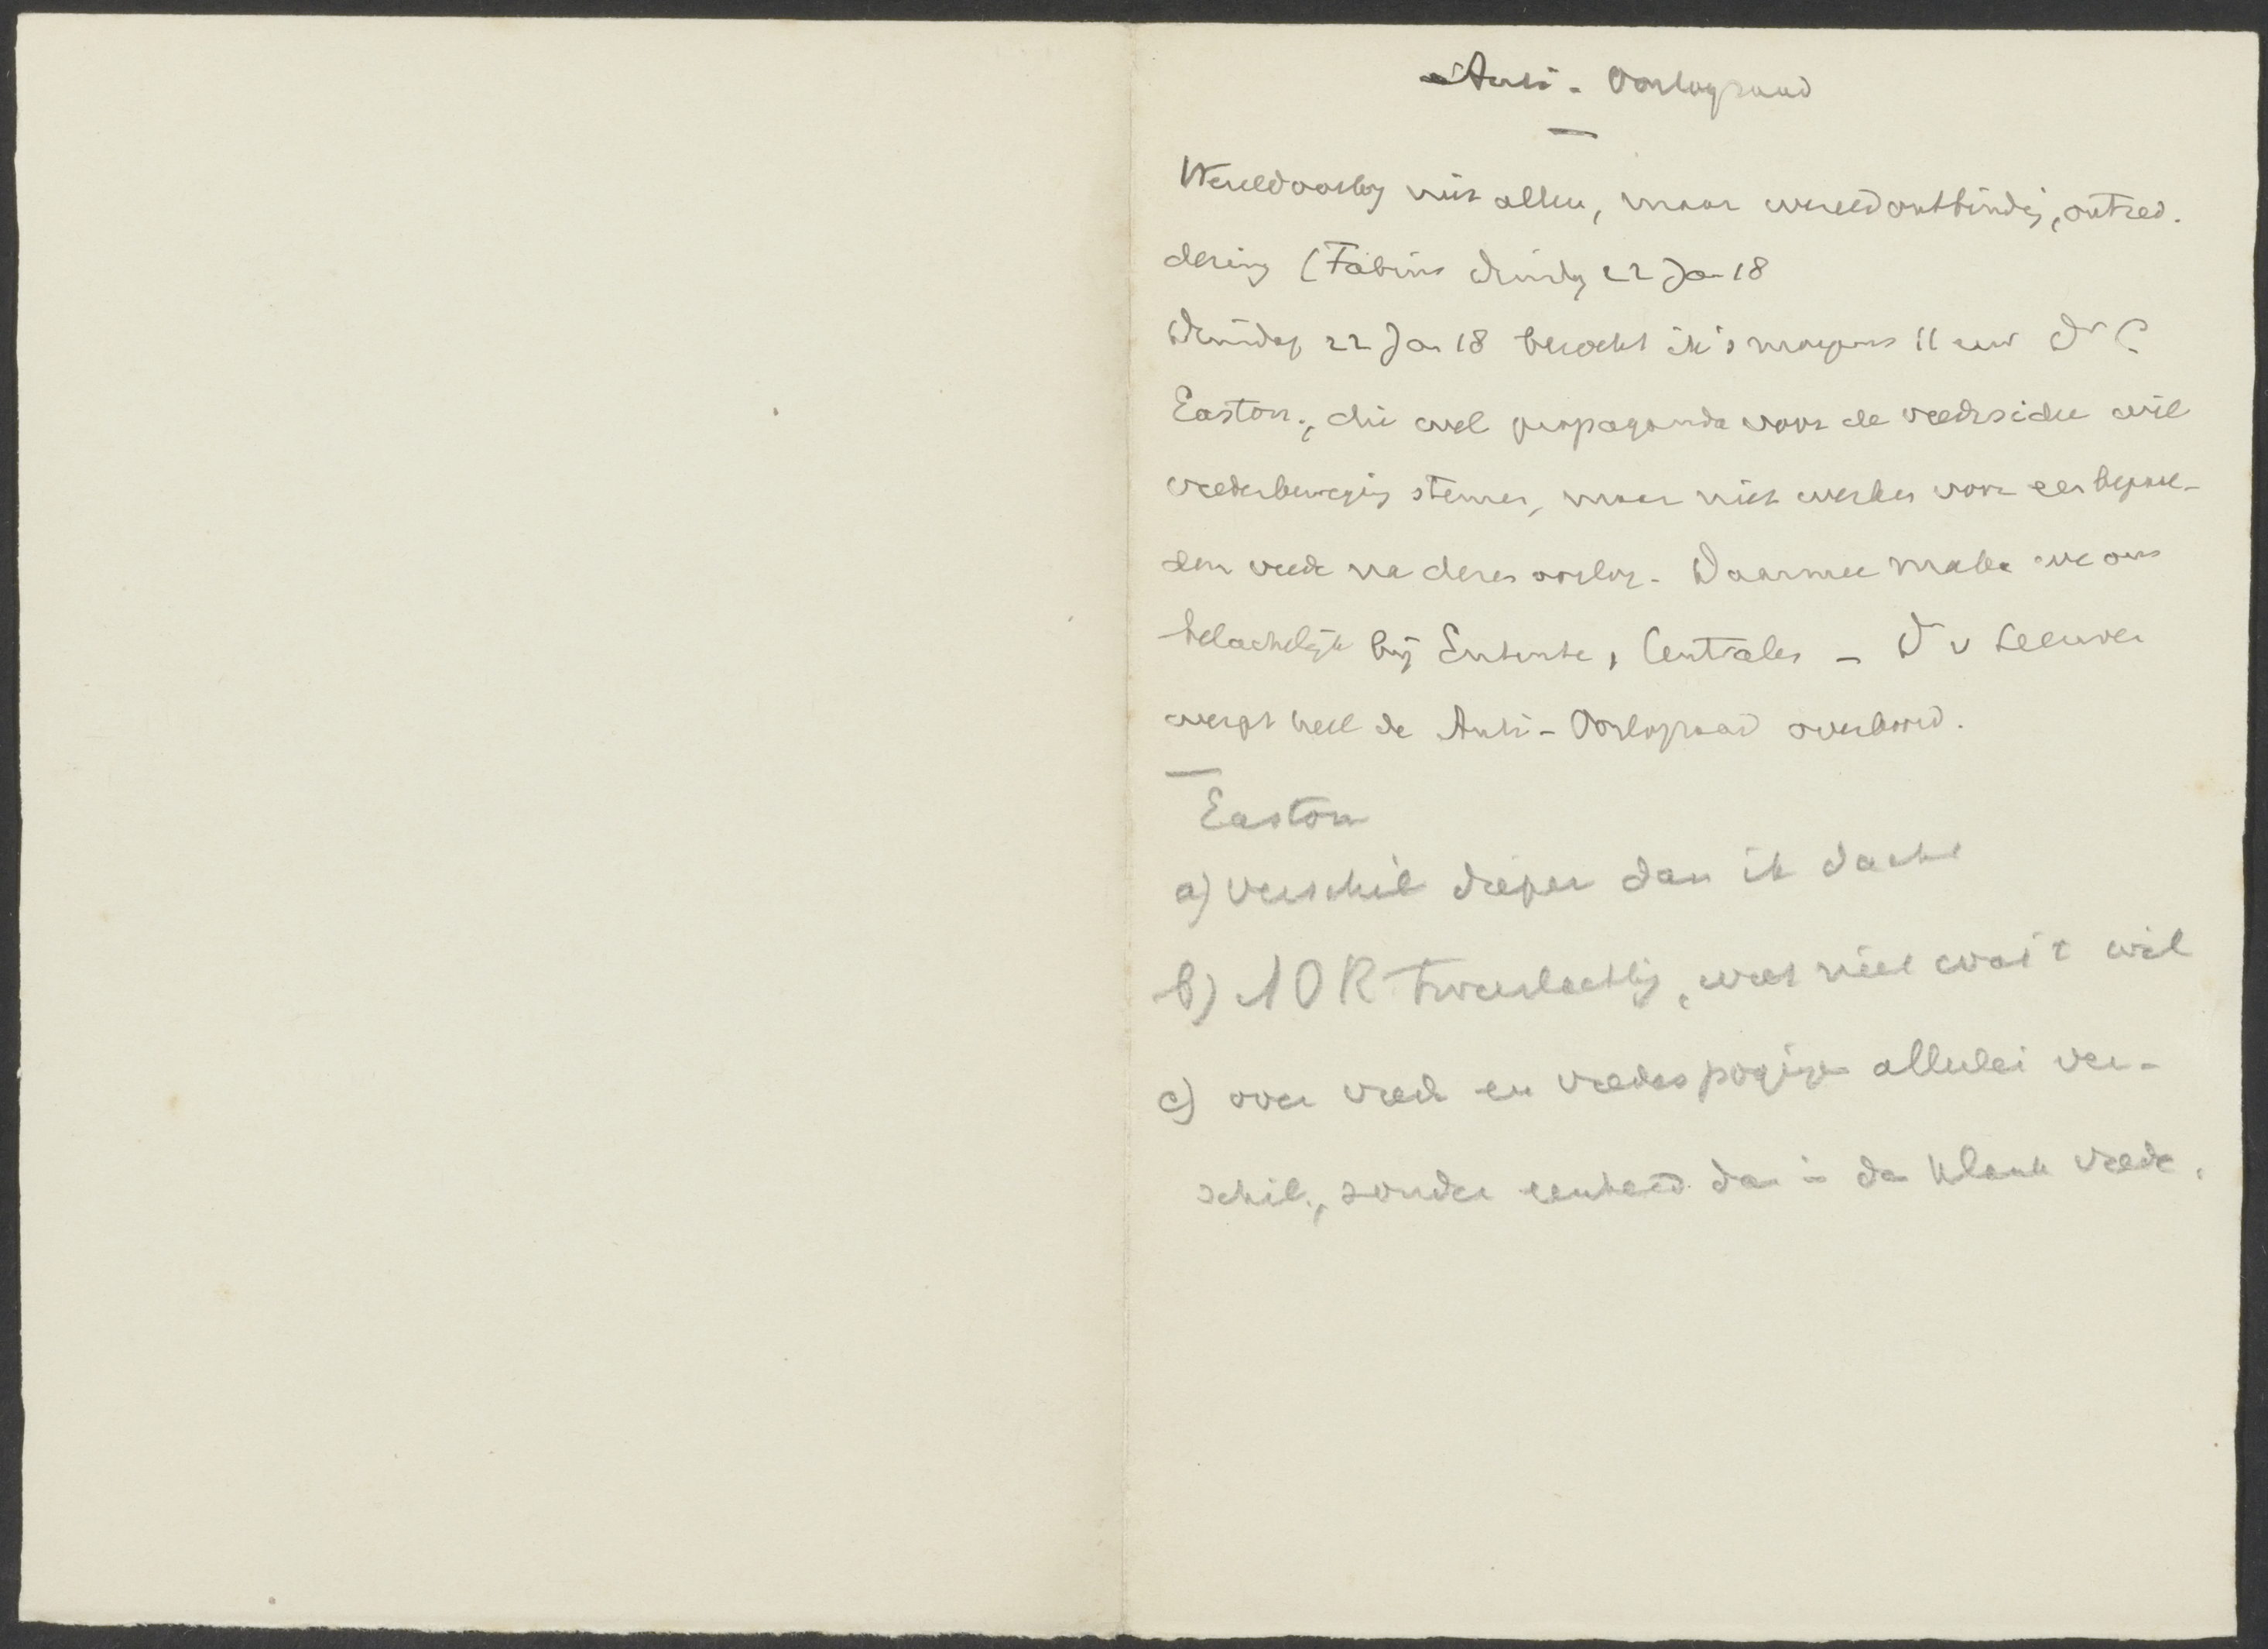 Anti-Oorlograad
Wereldoorlog niet alleen, maar wereldontbinding, ontred-
dering (Fabius dinsdag 22 Jan 18
Dinsdag 22 Jan 18 bezocht ik 's morgens 11 uur Dr C
Easton, die wel propaganda voor de vredesidee wil
vredesbeweging steunen, maar niet werken voor een bepaal-
den vrede na dezen oorlog. Daarmee maken we ons
belachelijk bij Entente, Centralen - D v Leeuwen
werpt heel de Anti-Oorlograad overboord.
Easton
a) verschil dieper dan ik dacht
b) AOR tweeslachtig, weet niet wat 't wil
c) over vrede en vredespogingen allerlei ver-
schil, zonder eenheid dan in den klank vrede.